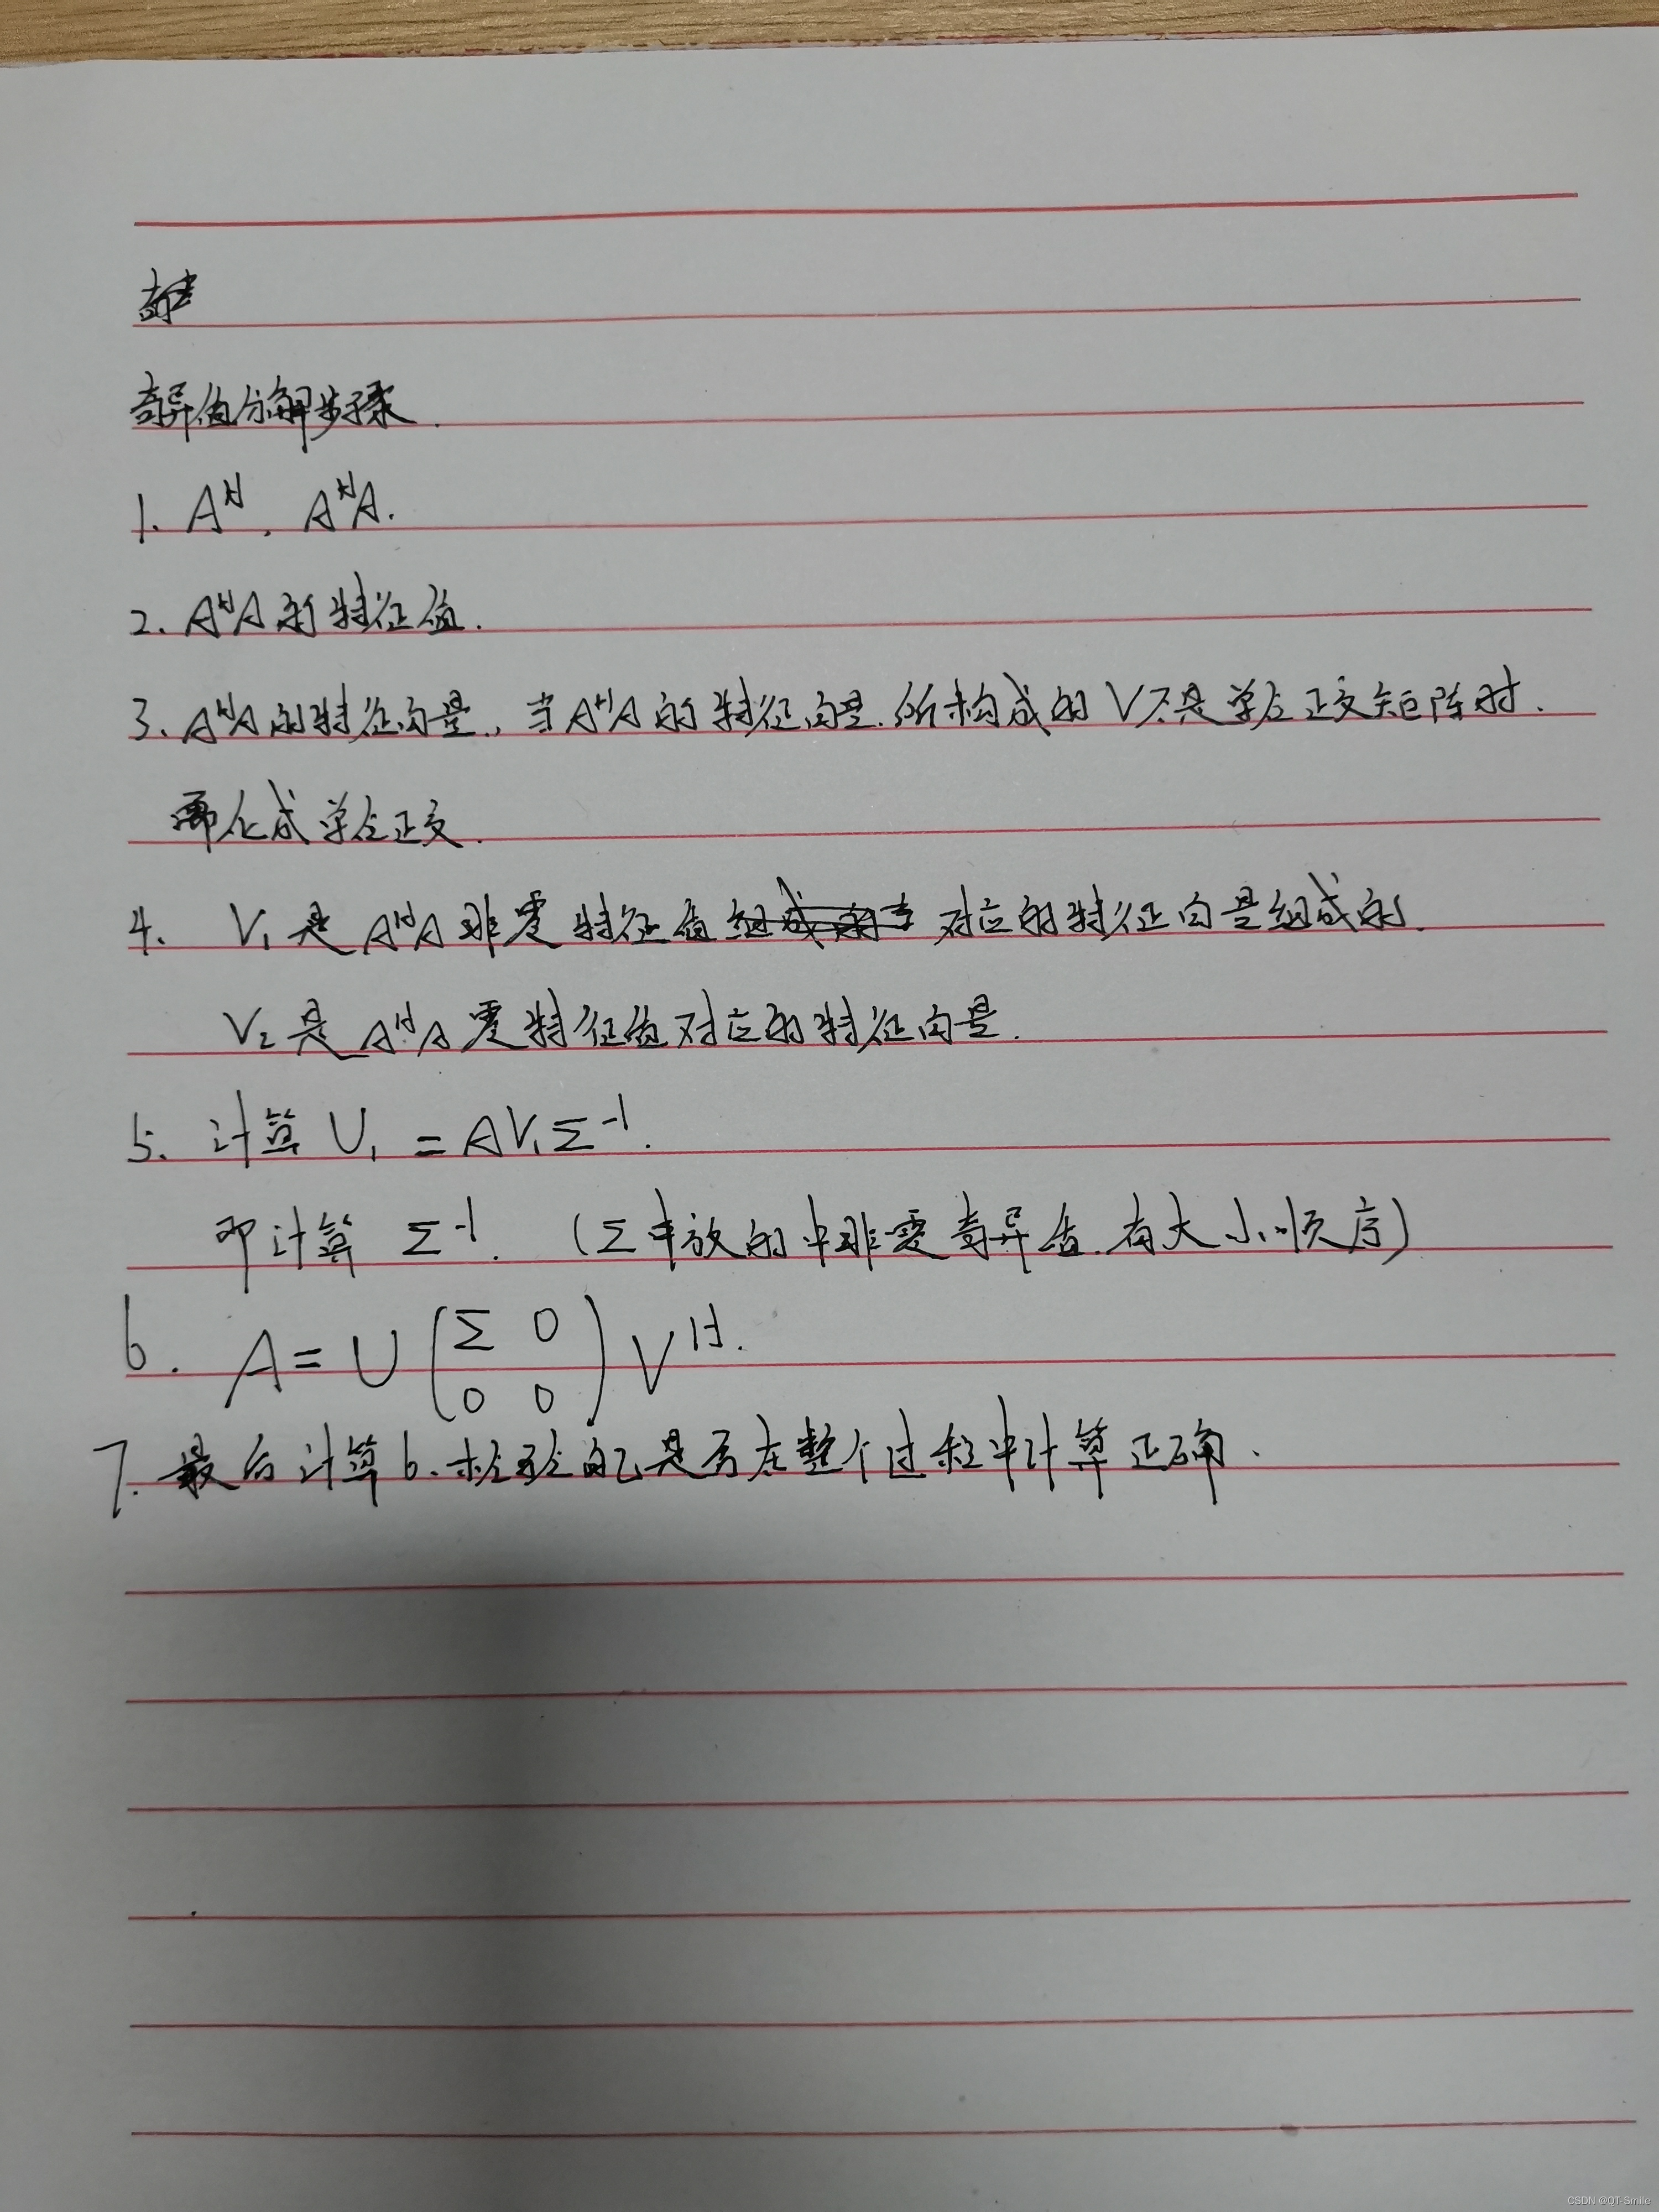 奇异值分解步骤.
1. Aᴴ, AᴴA.
2. AᴴA的特征值.
3. AᴴA的特征向量, 当AᴴA的特征向量.所构成的V不是单位正交矩阵时.
需化成单位正交.
4. V₁是AᴴA非零特征值对应的特征向量组成的.
V₂是AᴴA零特征值对应的特征向量.
5. 计算 U₁ = AV₁Σ⁻¹.
即计算 Σ⁻¹. (Σ中放的中非零奇异值.有大小顺序)
6. A = U (Σ 0
0 0) Vᴴ.
7. 最后计算6.检验自己是否在整个过程中计算正确.
CSDN @QT-Smile